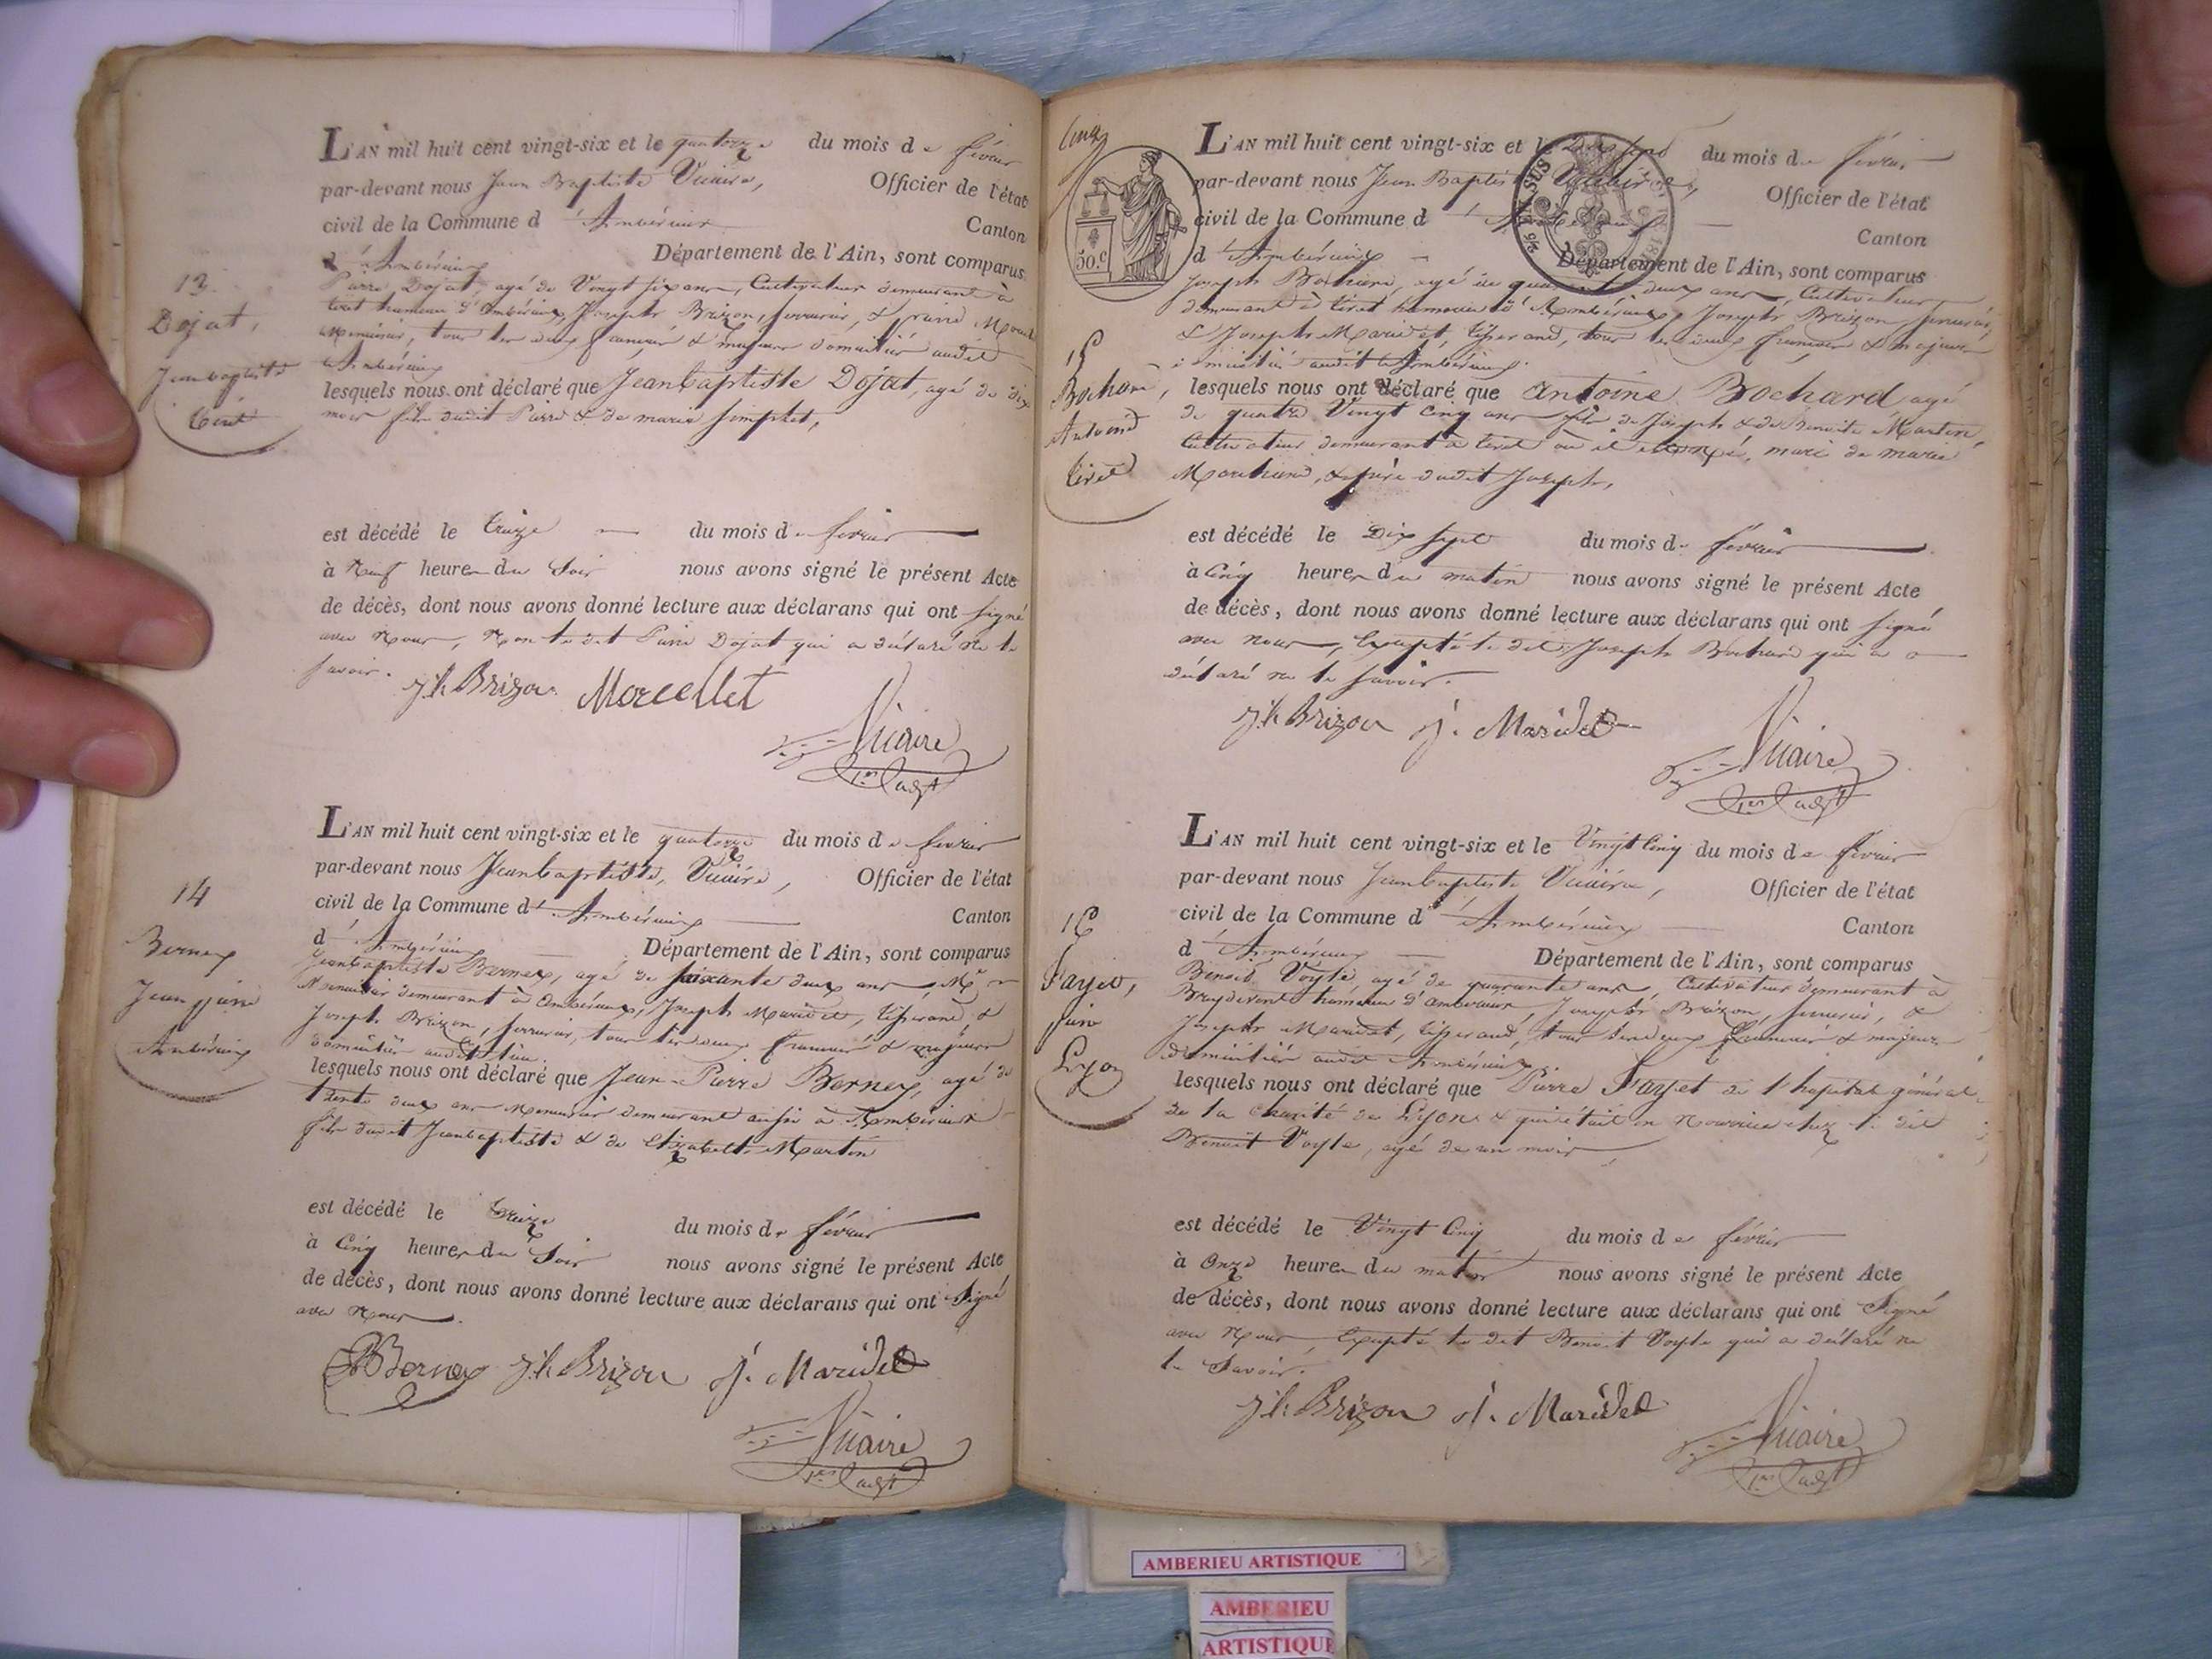 L'AN mil huit cent vingt-six et le quatorze du mois de février
par-devant nous Jean Baptiste Vicaire, Officier de l'état
civil de la Commune d'Ambérieux Canton
d'Ambérieux Département de l'Ain, sont comparus
13
Dojat,
Jeanbaptiste
tiret
Pierre Dojat, agé de Vingt six ans, Cultivateur demeurant à
tiret hameau d'Ambérieux, Joseph Brizon, serrurier, &
Menuisier, tous les deux français & majeurs domiciliés audit
Ambérieux
lesquels nous ont déclaré que Jeanbaptiste Dojat, agé de dix
mois fils dudit Pierre & de marie simplet,
est décédé le treize du mois de fevrier
à Neuf heures du Soir nous avons signé le présent Acte
de décès, dont nous avons donné lecture aux déclarans qui ont signé
avec Nous, Non le dit Pierre Dojat qui a déclaré ne le
savoir.
Jh Brizon Morcellet
Vicaire
1er adjt
L'AN mil huit cent vingt-six et le quatorze du mois de fevrier
par-devant nous Jeanbaptiste, Vicaire, Officier de l'état
civil de la Commune d'Ambérieux Canton
d'Ambérieux Département de l'Ain, sont comparus
14
Berney
Jean pierre
Ambérieux
Jeanbaptiste Berney, agé de soixante deux ans, Me
Menuisier demeurant à Ambérieux, Joseph Maridet, tisserand, &
Joseph Brizon, serrurier, tous les deux français & majeurs
domiciliés audit lieu.
lesquels nous ont déclaré que Jean-Pierre Berney, agé de
trente deux ans Menuisier demeurant aussi à Ambérieux
fils dudit Jeanbaptiste & de Elizabeth Martin
est décédé le treize du mois de février
à Cinq heures du Soir nous avons signé le présent Acte
de décès, dont nous avons donné lecture aux déclarans qui ont Signé
avec Nous.
Berney Jh Brizon J. Maridet
Vicaire
1er adjt
Cinq
50.c
L'AN mil huit cent vingt-six et le Dix sept du mois de février
par-devant nous Jean Baptiste Vicaire, Officier de l'état
civil de la Commune d'Ambérieux Canton
d'Ambérieux Département de l'Ain, sont comparus
15
Bochard,
Antoine
tiret
Joseph Bochard, agé de quarante deux ans, Cultivateur
demeurant à tiret hameau d'Ambérieux, Joseph Brizon, serrurier,
& Joseph Maridet, tisserand, tous les deux français & majeurs
domiciliés audit Ambérieux.
lesquels nous ont déclaré que Antoine Bochard agé
de quatre Vingt Cinq ans fils de Joseph & de Benoite Martin,
Cultivateur demeurant à tiret où il est, mari de marie
Marchand, & père dudit Joseph,
est décédé le Dix sept du mois de fevrier
à Cinq heures du matin nous avons signé le présent Acte
de décès, dont nous avons donné lecture aux déclarans qui ont signé
avec nous, Excepté le dit Joseph Bochard qui a
déclaré ne le savoir.
Jh Brizon J. Maridet
Vicaire
1er adjt
L'AN mil huit cent vingt-six et le Vingt Cinq du mois de février
par-devant nous Jeanbaptiste Vicaire, Officier de l'état
civil de la Commune d'Ambérieux Canton
d'Ambérieux Département de l'Ain, sont comparus
16
Fayet,
pierre
Lyon
Benoit Voyle, agé de quarante ans, Cultivateur demeurant à
hameau d'Ambérieux, Joseph Brizon, serrurier, &
Joseph Maridet, tisserand, tous les deux français & majeurs
domiciliés audit Ambérieux
lesquels nous ont déclaré que Pierre Fayet de l'hopital général
de la charité de Lyon & qui était en Nourrice chez le dit
Benoit Voyle, agé de un mois,
est décédé le Vingt Cinq du mois de février
à Onze heures du matin nous avons signé le présent Acte
de décès, dont nous avons donné lecture aux déclarans qui ont Signé
avec Nous, Excepté le dit Benoit Voyle qui a déclaré ne
le Savoir.
Jh Brizon J. Maridet
Vicaire
1er adjt
AMBERIEU ARTISTIQUE
AMBERIEU
ARTISTIQUE